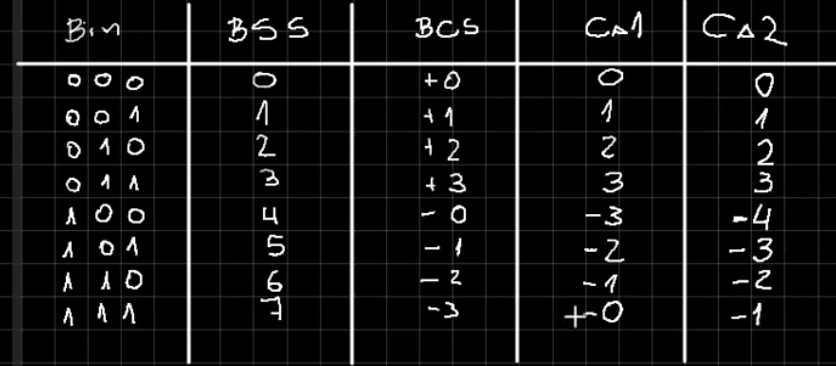 Bin BSS BCS CA1 CA2
000 0 +0 0 0
001 1 +1 1 1
010 2 +2 2 2
011 3 +3 3 3
100 4 -0 -3 -4
101 5 -1 -2 -3
110 6 -2 -1 -2
111 7 -3 +-0 -1